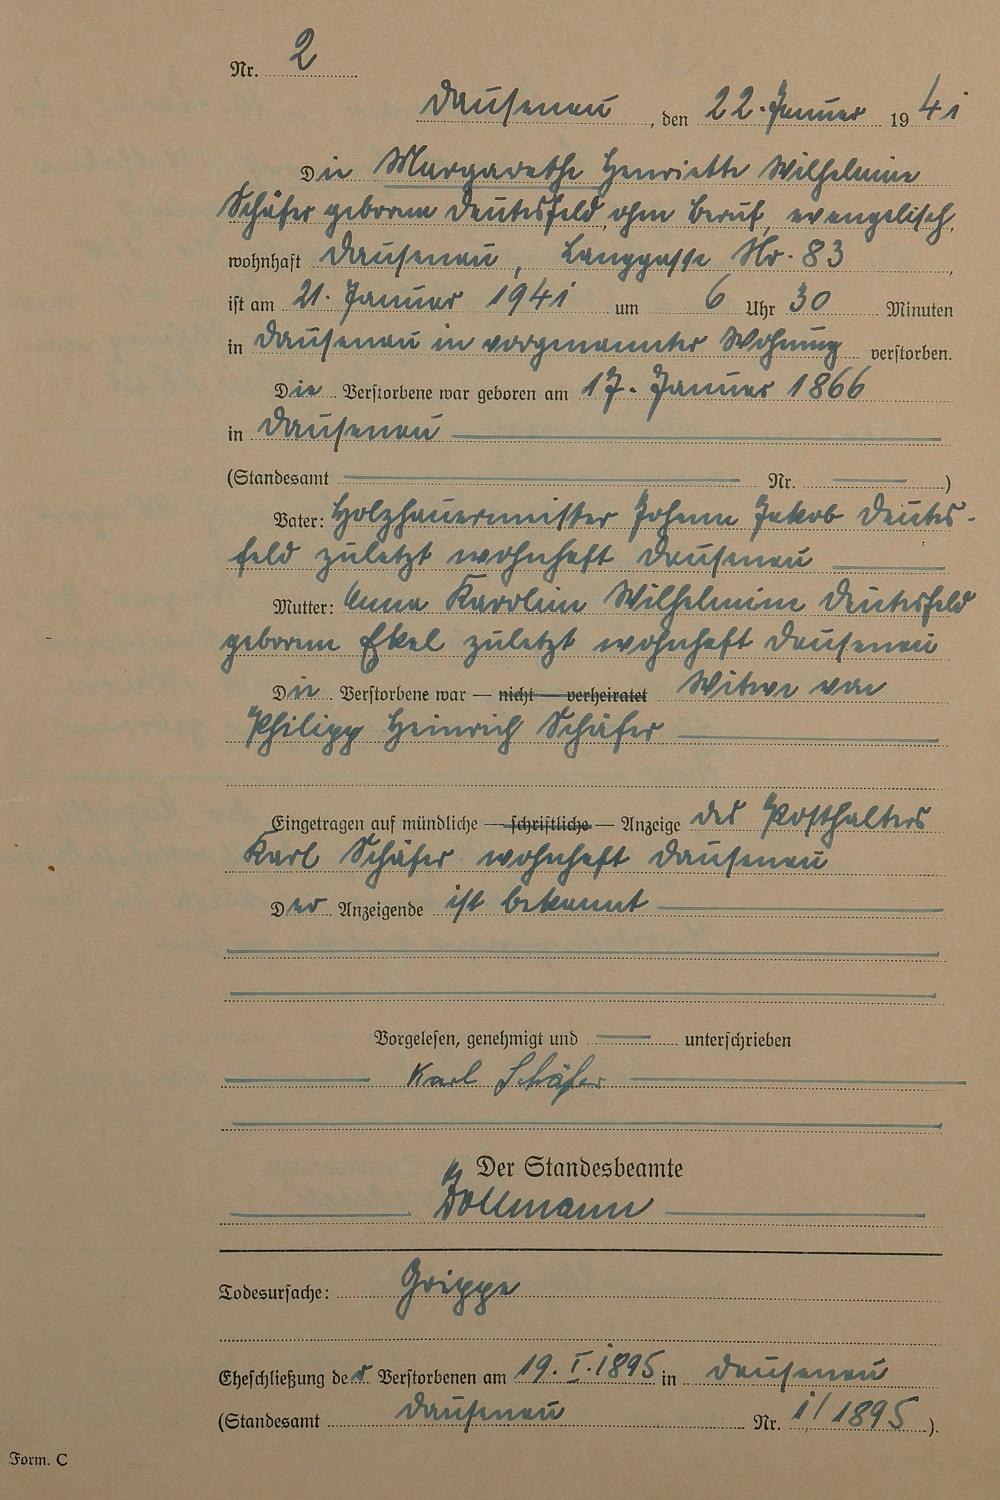 Nr. 2
Dausenau, den 22. Januar 1941
Die Margarethe Henriette Wilhelmine
Schäfer geborene Deutesfeld, ohne Beruf, evangelisch,
wohnhaft Dausenau, Langgasse Nr. 83,
ist am 21. Januar 1941 um 6 Uhr 30 Minuten
in Dausenau in vorgenannter Wohnung verstorben.
Die Verstorbene war geboren am 17. Januar 1866
in Dausenau
(Standesamt Nr. )
Vater: Holzhauermeister Johann Jakob Deutes-
feld zuletzt wohnhaft Dausenau
Mutter: Anna Karoline Wilhelmine Deutesfeld
geborene Ekel zuletzt wohnhaft Dausenau
Die Verstorbene war — nicht — verheiratet Witwe von
Philipp Heinrich Schäfer
Eingetragen auf mündliche — schriftliche — Anzeige des Posthalters
Karl Schäfer wohnhaft Dausenau
Der Anzeigende ist bekannt
Vorgelesen, genehmigt und — unterschrieben
Karl Schäfer
Der Standesbeamte
Döllmann
Todesursache: Grippe
Eheschließung der Verstorbenen am 19. I. 1895 in Dausenau
(Standesamt Dausenau Nr. 1/1895).
Form. C